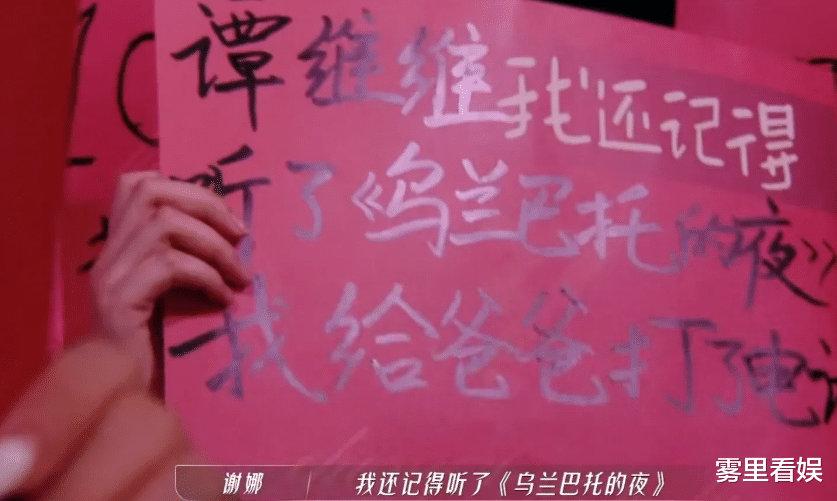 谭维维我还记得
听了《乌兰巴托的夜》
我给爸爸打了电
谢娜 我还记得听了《乌兰巴托的夜》
雾里看娱